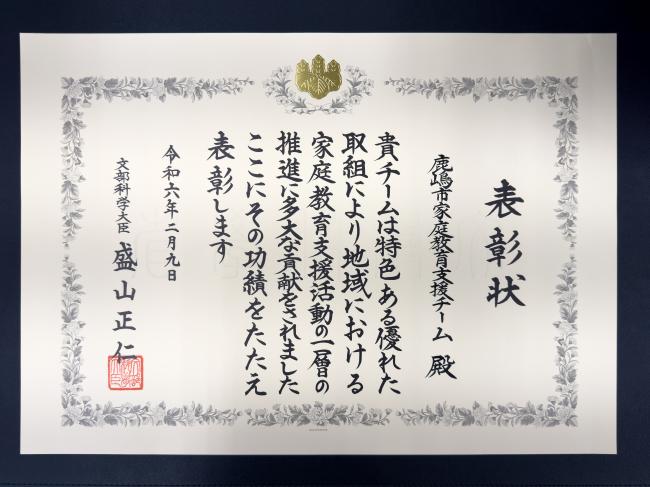 表彰状
鹿嶋市家庭教育支援チーム 殿
貴チームは特色ある優れた
取組により地域における
家庭教育支援活動の一層の
推進に多大な貢献をされました
ここにその功績をたたえ
表彰します
令和六年二月九日
文部科学大臣 盛山正仁